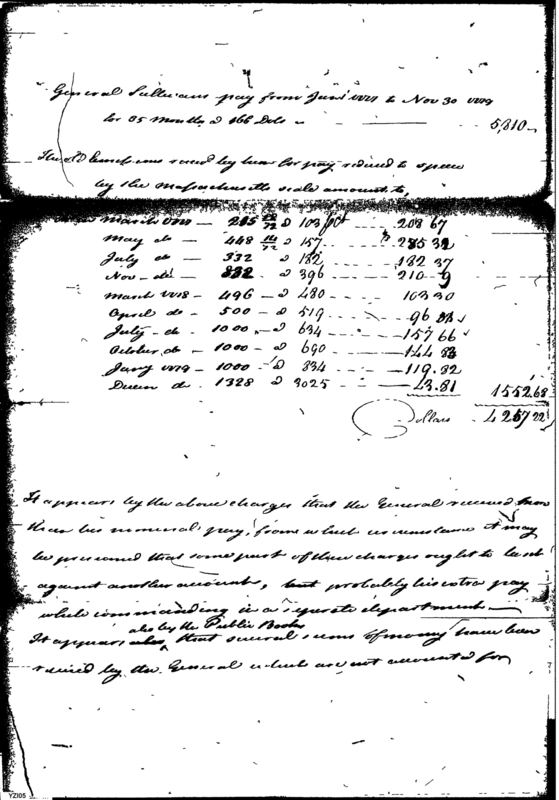 General Sullivans pay from Jan 1 1777 to Nov 30 1779
for 35 Months @ 166 Dols — 5,810 —
The sd sums recd by him for pay, reduced to specie
by the Massachusetts scale amount to,
March 1777 — 215 @ 103 pCt — 208 67
May do — 448 @ 157 — 285 32
July do — 332 @ 182 — 182 37
Nov - do — 332 @ 396 — 210 9
March 1778 — 496 @ 480 — 103 30
April do — 500 @ 519 — 96 33
July do — 1000 @ 634 — 157 66
October do — 1000 @ 690 — 144 83
Jany 1779 — 1000 @ 834 — 119.82
Decem do — 1328 @ 3025 — 43.81 1552.68
Dollars 4257 22
It appears by the above charges that the General received more
than his nominal pay, from which circumstance it may
be presumed that some part of these charges ought to be
against another account, but probably his extra pay
while commanding in a seperate department —
also by the Public Books
It appears that several sums of money have been
received by the General which are not accounted for
YZI05